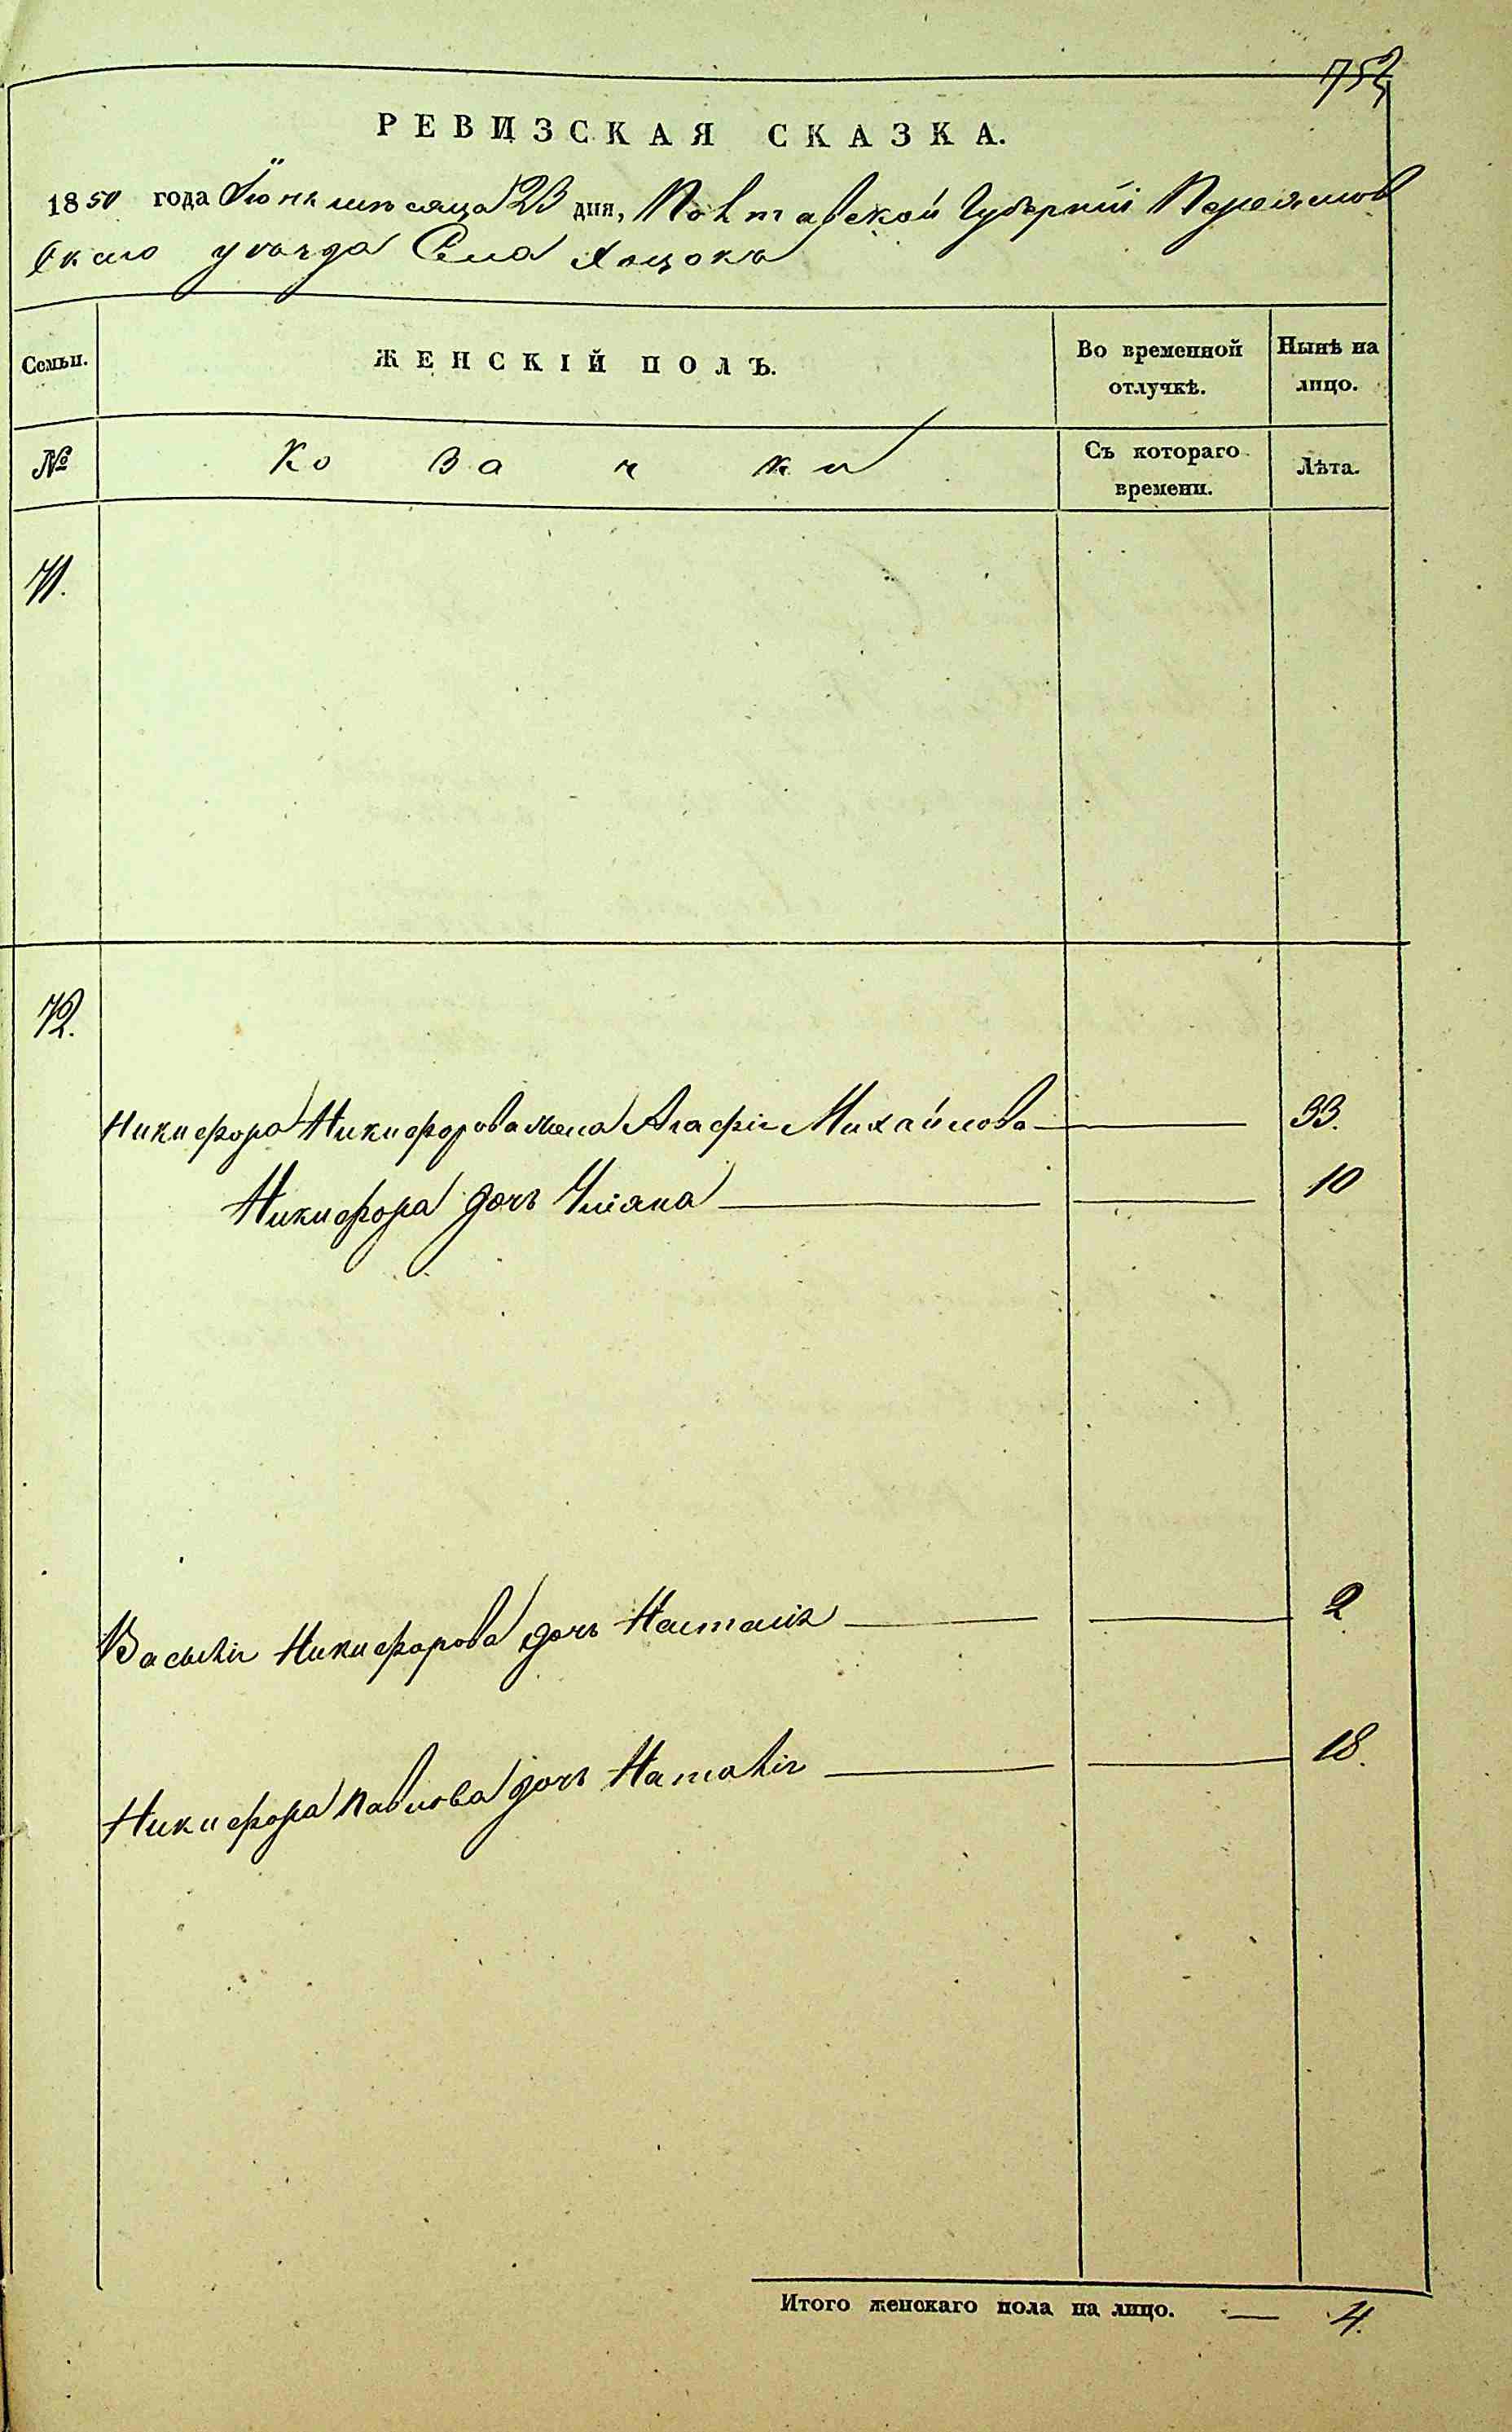 752
РЕВИЗСКАЯ СКАЗКА.
1850 года Июня месяца 23 дня, Полтавской Губерніи Переяслов
скаго уезда Села Хоцокъ
Семьи. ЖЕНСКІЙ ПОЛЪ. Во временной отлучкѣ. Нынѣ на лицо.
№ Козачки Съ котораго времени. Лѣта.
71.
72.
Никифора Никифорова жена Агафія Михайлова 33.
Никифора дочь Уліяна 10
Василія Никифорова дочь Настасія 2
Никифора Павлова дочь Наталія 18.
Итого женскаго пола на лицо. — 4.